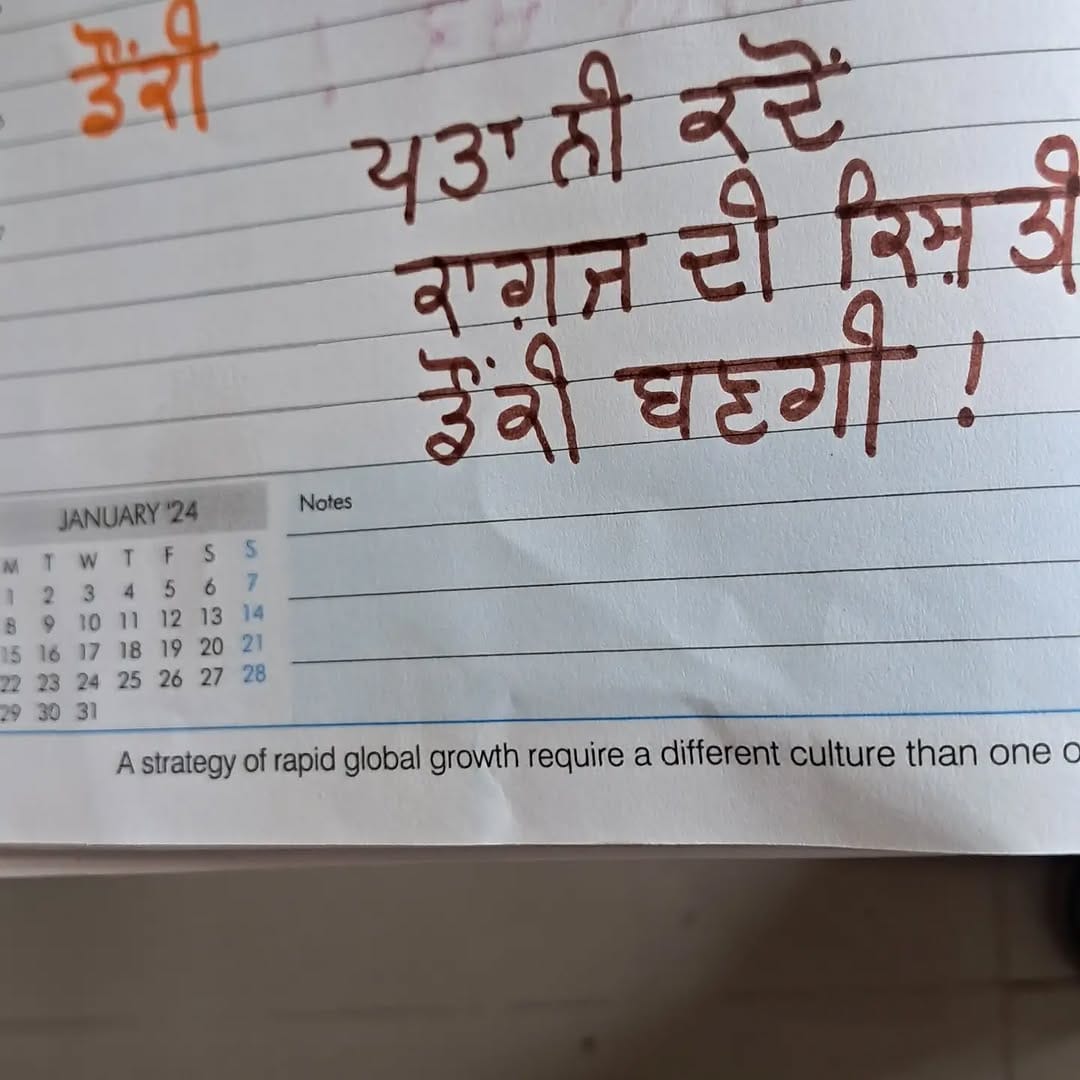 ਡੌਂਕੀ
ਪਤਾ ਨੀ ਕਦੋਂ
ਕਾਗ਼ਜ ਦੀ ਕਿਸ਼ਤੀ
ਡੌਂਕੀ ਬਣਗੀ !
JANUARY '24
Notes
M T W T F S S
1 2 3 4 5 6 7
8 9 10 11 12 13 14
15 16 17 18 19 20 21
22 23 24 25 26 27 28
29 30 31
A strategy of rapid global growth require a different culture than one